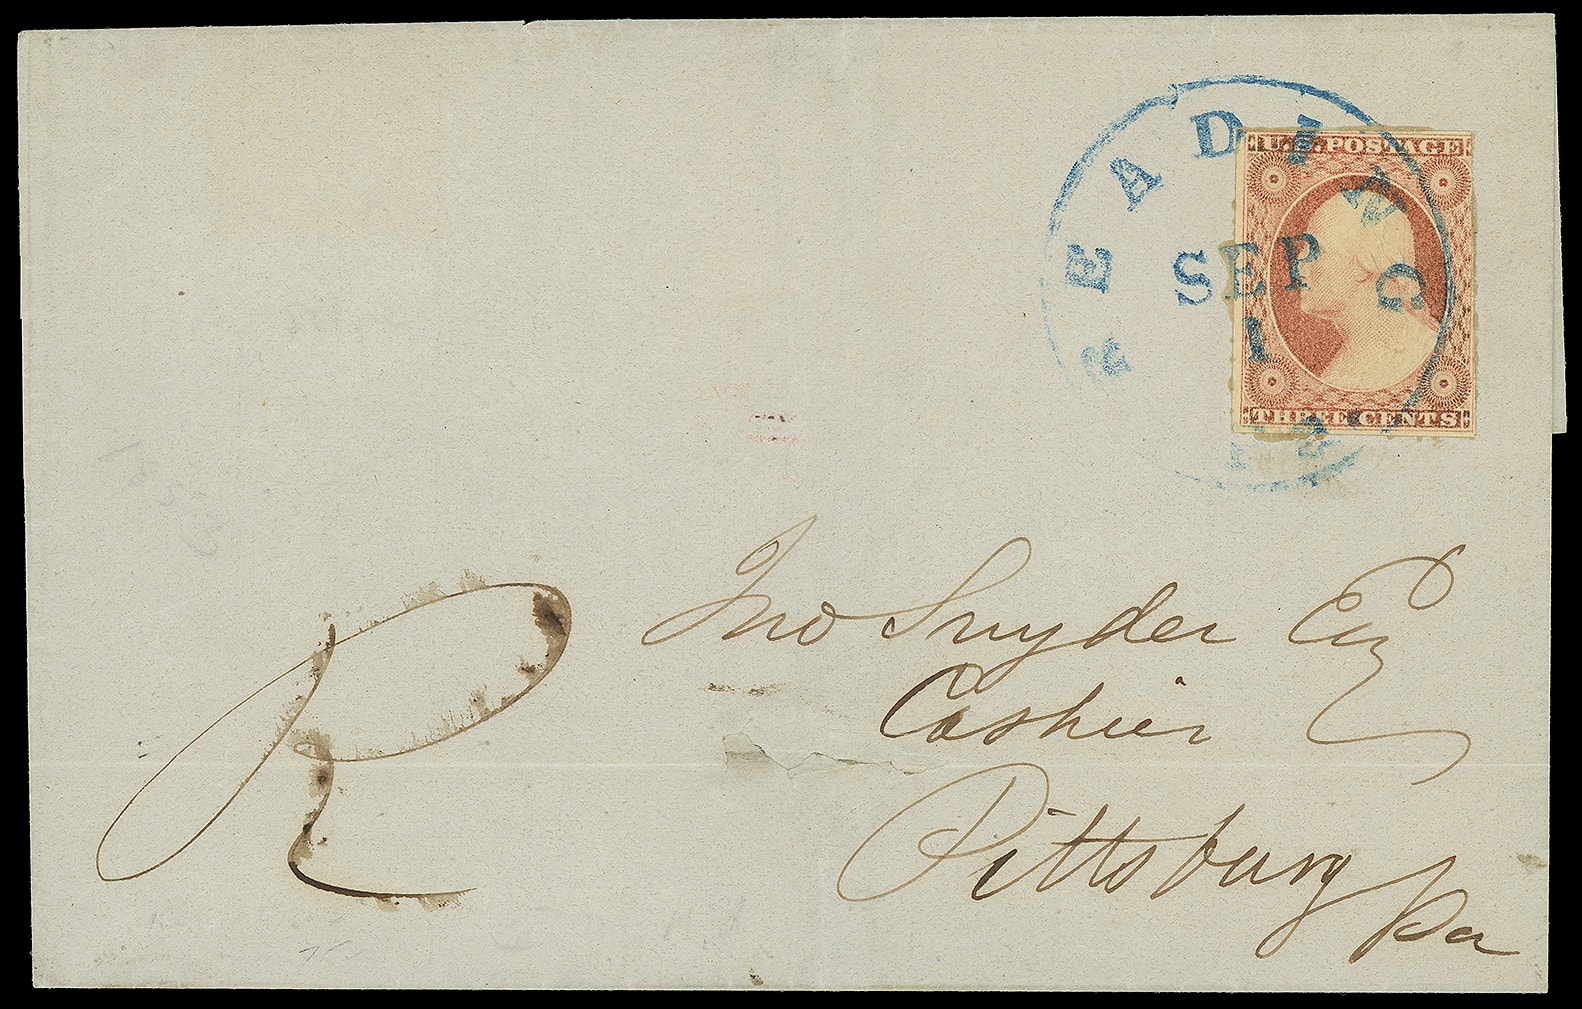 READING
SEP
1
Pa
U.S. POSTAGE
THREE CENTS
R
Jno Snyder Esq
Cashier
Pittsburg
Pa